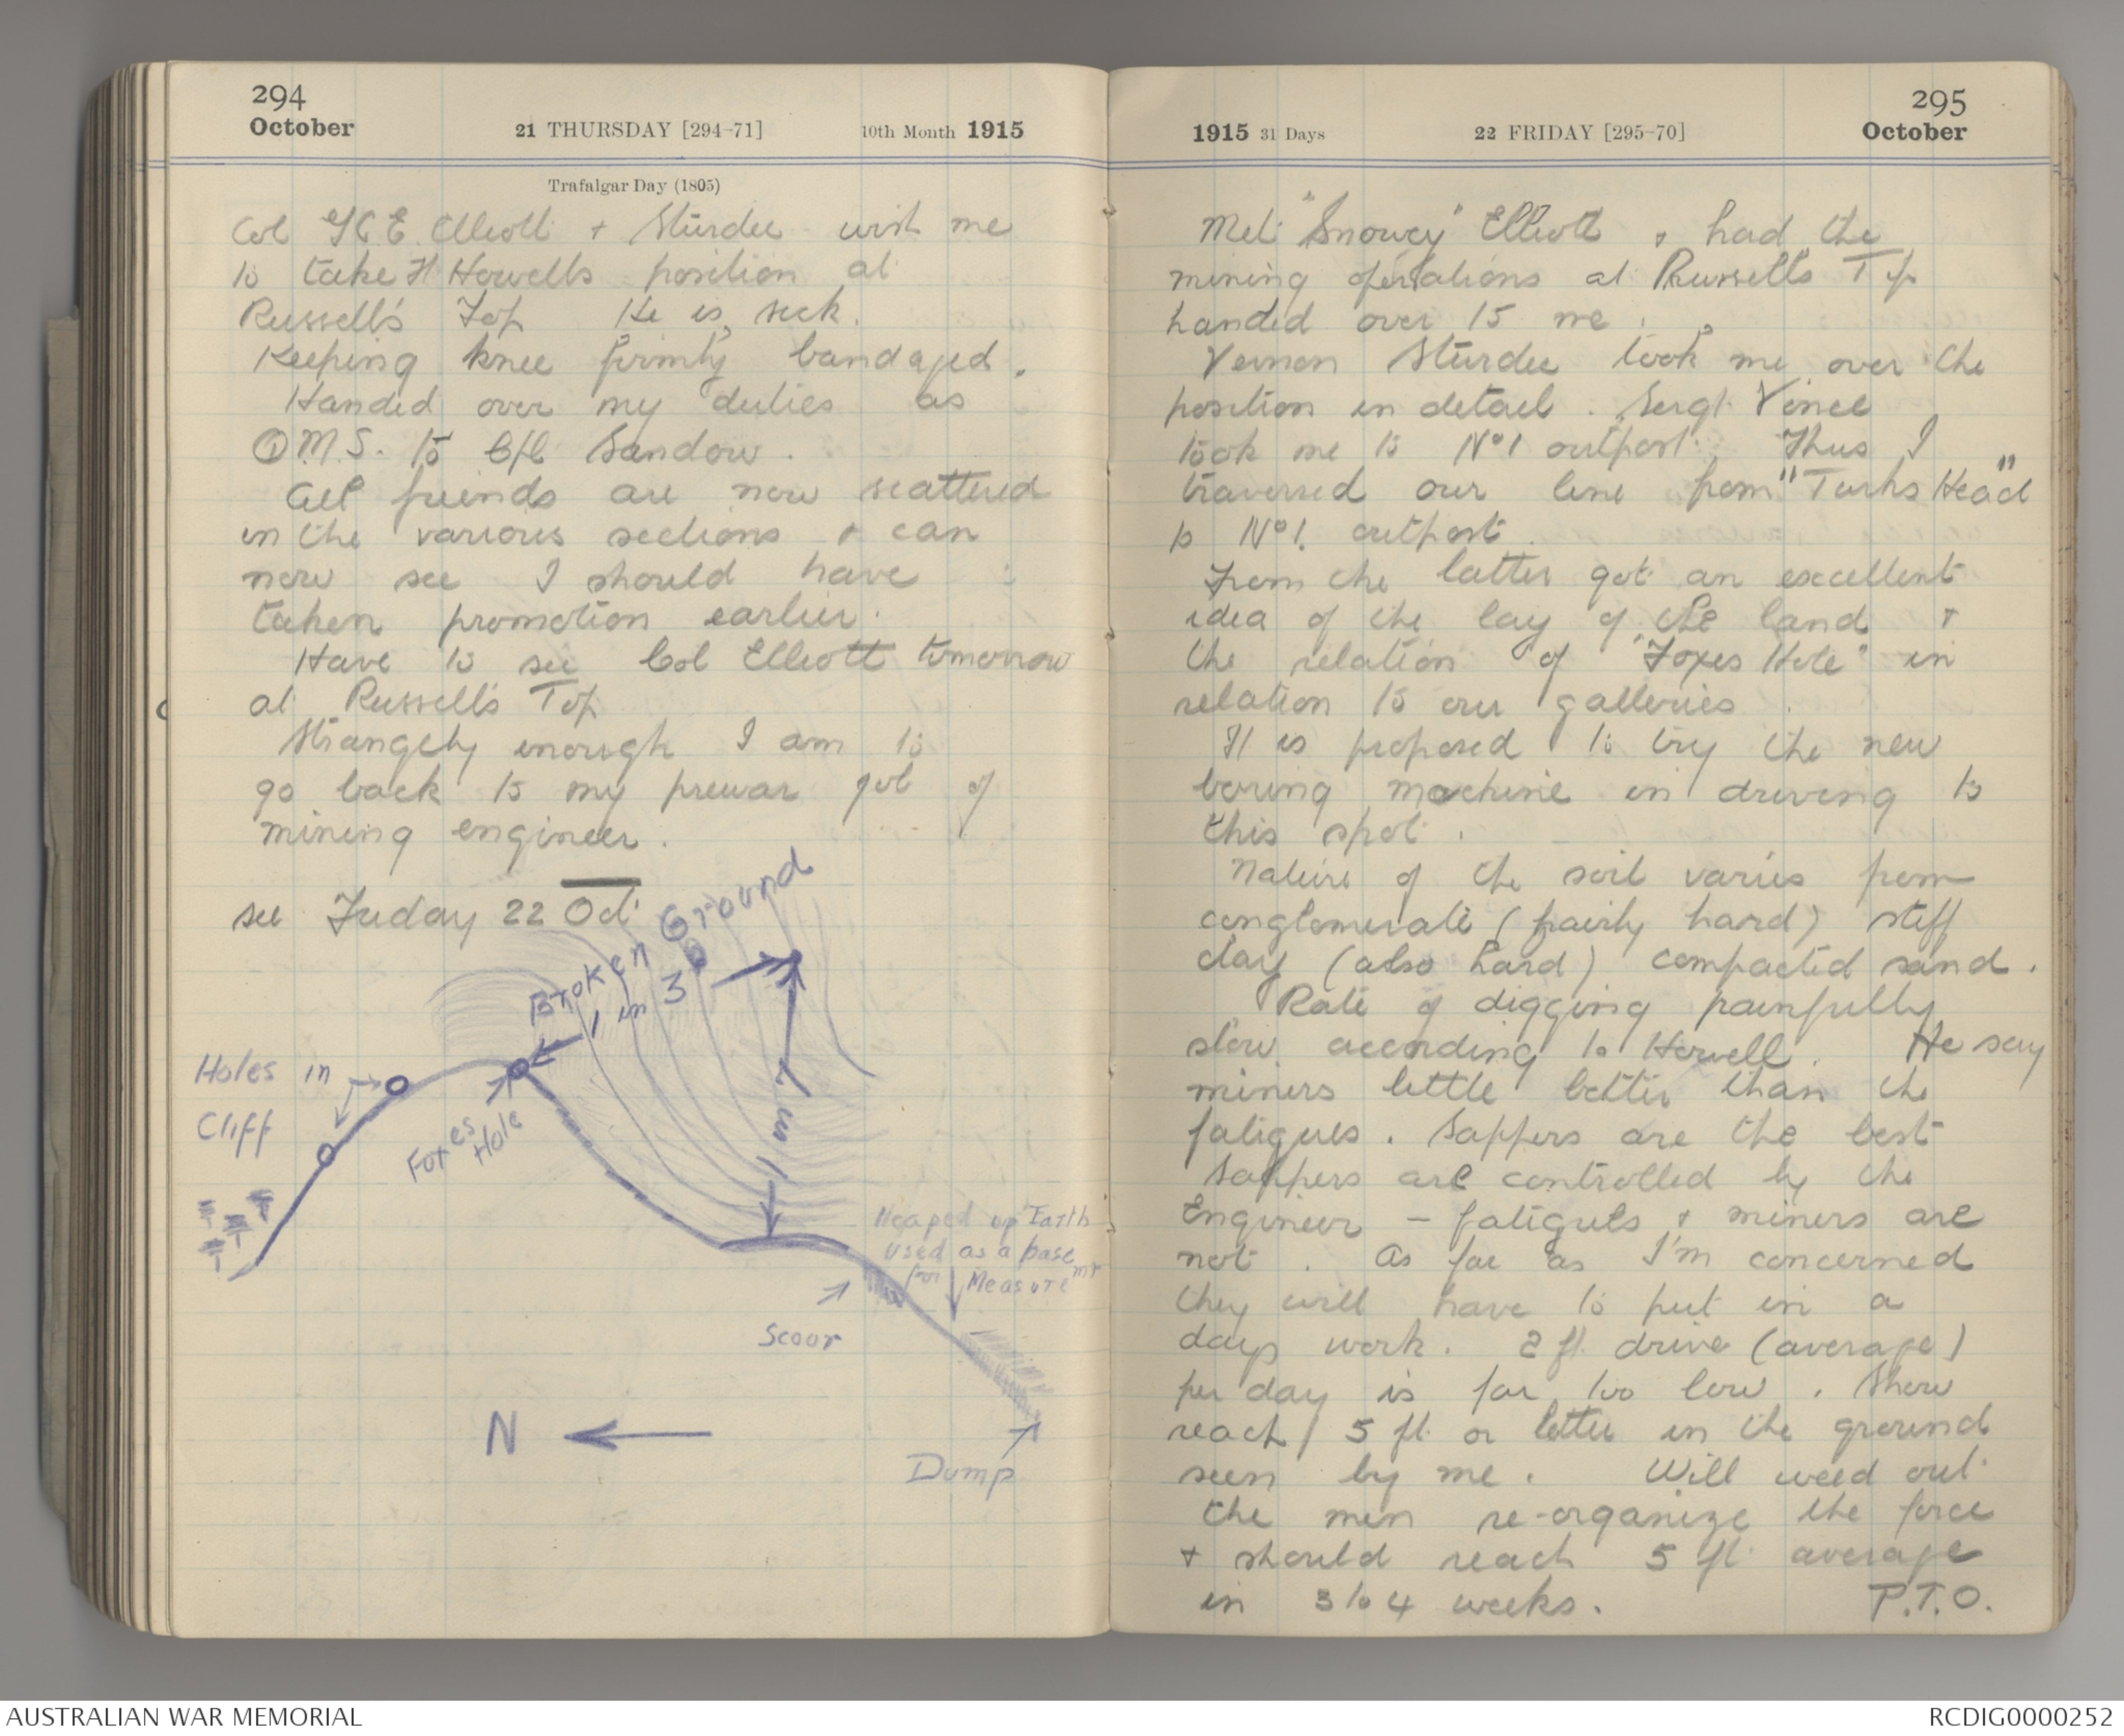 294
October
21 THURSDAY [294-71]
10th Month 1915
Trafalgar Day (1805)
Col H.E. Elliott + Sturdee wish me
to take H Howells position at
Russell's Top He is sick.
Keeping knee firmly bandaged.
Handed over my duties as
Q.M.S. to Cpl Sandow.
All friends are now scattered
in the various sections + can
now see I should have
taken promotion earlier.
Have to see Col Elliott tomorrow
at Russell's Top
Strangely enough I am to
go back to my prewar job of
mining engineer.
see Friday 22 Oct
Broken Ground
1 in 3
1 in 7
Holes in
Cliff
Foxes
Hole
Heaped up Earth
used as a base
for Measuremt
Scour
N
Dump
295
October
1915 31 Days
22 FRIDAY [295-70]
Met "Snowey" Elliott + had the
mining operations at Russells Top
handed over to me.
Vernon Sturdee took me over the
position in detail. Sergt Vince
took me to No 1 outpost. Thus I
traversed our line from "Turks Head"
to No 1. outpost.
From the latter got an excellent
idea of the lay of the land +
the relation of "Foxes Hole" in
relation to our galleries.
It is proposed to try the new
boring machine in driving to
this spot.
Nature of the soil varies from
conglomerate (fairly hard) stiff
clay (also hard) compacted sand.
Rate of digging painfully
slow according to Howell. He say
miners little better than the
fatigues. Sappers are the best
Sappers are controlled by the
Engineer - fatigues + miners are
not. As far as I'm concerned
they will have to put in a
days work. 2 ft drive (average)
per day is far too low. Show
reach 5 ft or better in the ground
seen by me. Will weed out
the men re-organize the force
+ should reach 5 ft average
in 3 to 4 weeks. P.T.O.
AUSTRALIAN WAR MEMORIAL
RCDIG0000252